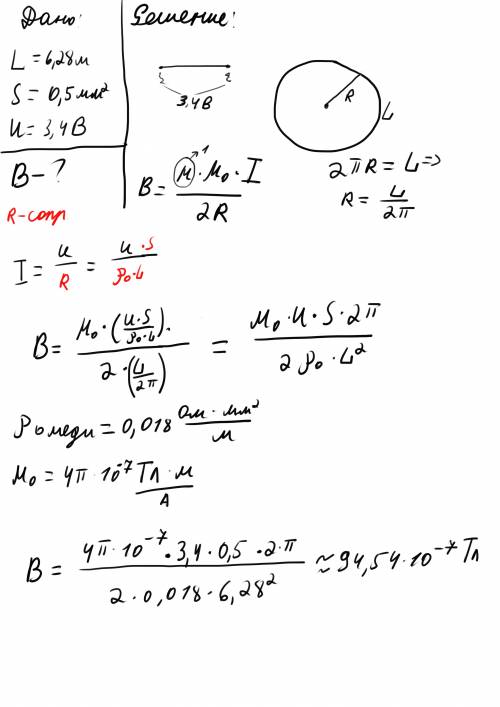 Дано:
L = 6,28 м
S = 0,5 мм²
U = 3,4 В
B - ?
R - сопр
Решение:
3,4 В
R
L
B = μ · μ₀ · I / 2R
1
2πR = L =>
R = L / 2π
I = U / R = U · S / ρ₀ · L
B = μ₀ · (U · S / ρ₀ · L) · / 2 · (L / 2π) = μ₀ · U · S · 2π / 2 ρ₀ · L²
ρ₀ меди = 0,018 Ом · мм² / м
μ₀ = 4π · 10⁻⁷ Тл · м / А
B = 4π · 10⁻⁷ · 3,4 · 0,5 · 2 · π / 2 · 0,018 · 6,28² ≈ 94,54 · 10⁻⁷ Тл